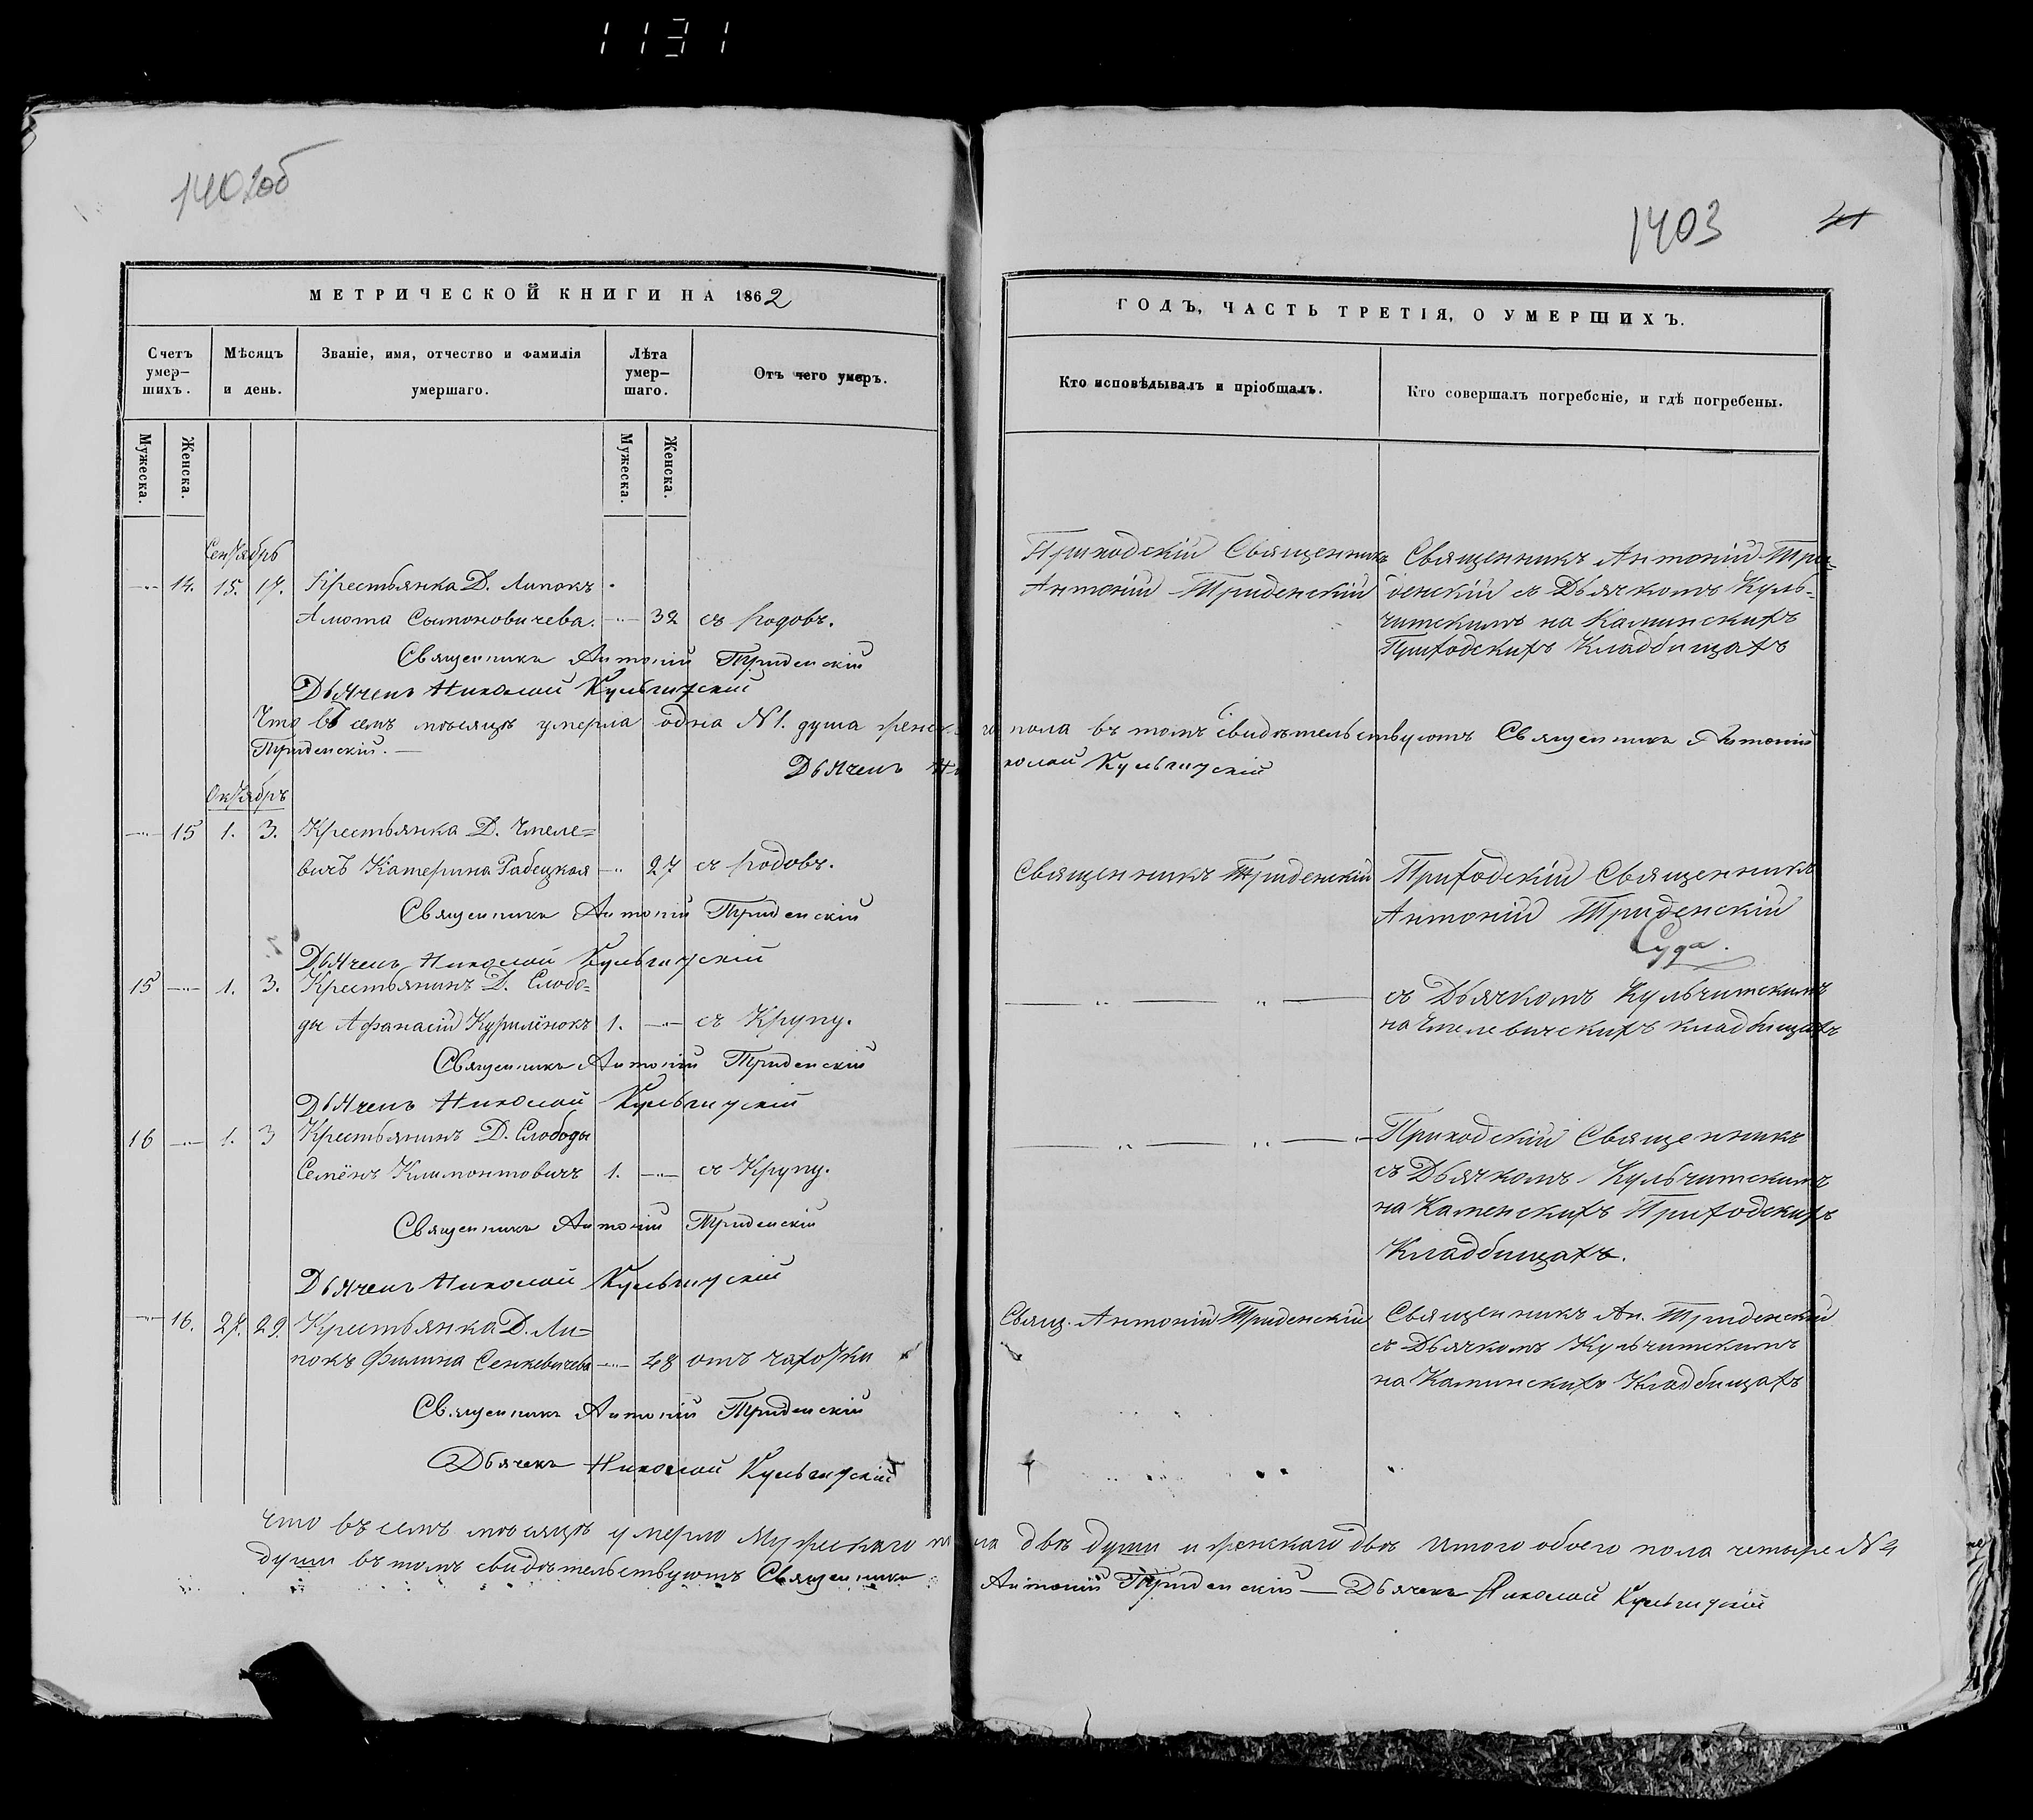 1131
1402об
1403
41
МЕТРИЧЕСКОЙ КНИГИ НА 1862
Счетъ умер-шихъ.
Мѣсяцъ и день.
Званіе, имя, отчество и фамилія умершаго.
Лѣта умер-шаго.
Отъ чего умеръ.
Мужеска.
Женска.
Мужеска.
Женска.
Сентябрь
14. 15. 17. Крестьянка Д. Липокъ
Симоновичева. 32 съ родовъ.
Священникъ Антоній Триденскій
Дьячекъ Николай Кульчитскій
Что въ семъ мѣсяцѣ умерла одна №1. душа женскаго пола въ томъ свидѣтельствуютъ Священникъ Антоній
Триденскій.
Дьячекъ Николай Кульчитскій
Октябрь
15 1. 3. Крестьянка Д. Чмеле=
вичъ Катерина Рабецкая 27 съ родовъ.
Священникъ Антоній Триденскій
Дьячекъ Николай Кульчитскій
15 1. 3. Крестьянинъ Д. Слобо=
ды Афанасій Курилёнокъ 1. съ Крупу.
Священникъ Антоній Триденскій
Дьячекъ Николай Кульчитскій
16 1. 3 Крестьянинъ Д. Слободы
Семёнъ Климонтовичъ 1. съ Крупу.
Священникъ Антоній Триденскій
Дьячекъ Николай Кульчитскій
16. 27. 29. Крестьянка Д. Ли=
покъ Филина Сенкевичева 48 отъ чахотки
Священникъ Антоній Триденскій
Дьячекъ Николай Кульчитскій
Что въ семъ мѣсяцѣ умерло Мужескаго пола двѣ души и женскаго двѣ Итого обоего пола четыре №4
души въ томъ свидѣтельствуютъ Священникъ Антоній Триденскій — Дьячекъ Николай Кульчитскій
ГОДЪ, ЧАСТЬ ТРЕТІЯ, О УМЕРШИХЪ.
Кто исповѣдывалъ и пріобщалъ.
Кто совершалъ погребеніе, и гдѣ погребены.
Приходскій Священникъ
Антоній Триденскій
Священникъ Антоній Три-
денскій съ Дьячкомъ Куль-
читскимъ на Каминскихъ
Приходскихъ Кладбищахъ
Священникъ Триденскій
Приходскій Священникъ
Антоній Триденскій
съ Дьячкомъ Кульчитскимъ
на Чмелевичскихъ кладбищахъ
Приходскій Священникъ
съ Дьячкомъ Кульчитскимъ
на Каменскихъ Приходскихъ
Кладбищахъ.
Свящ. Антоній Триденскій
Священникъ Ан. Триденскій
съ Дьячкомъ Кульчитскимъ
на Каминскихъ Кладбищахъ